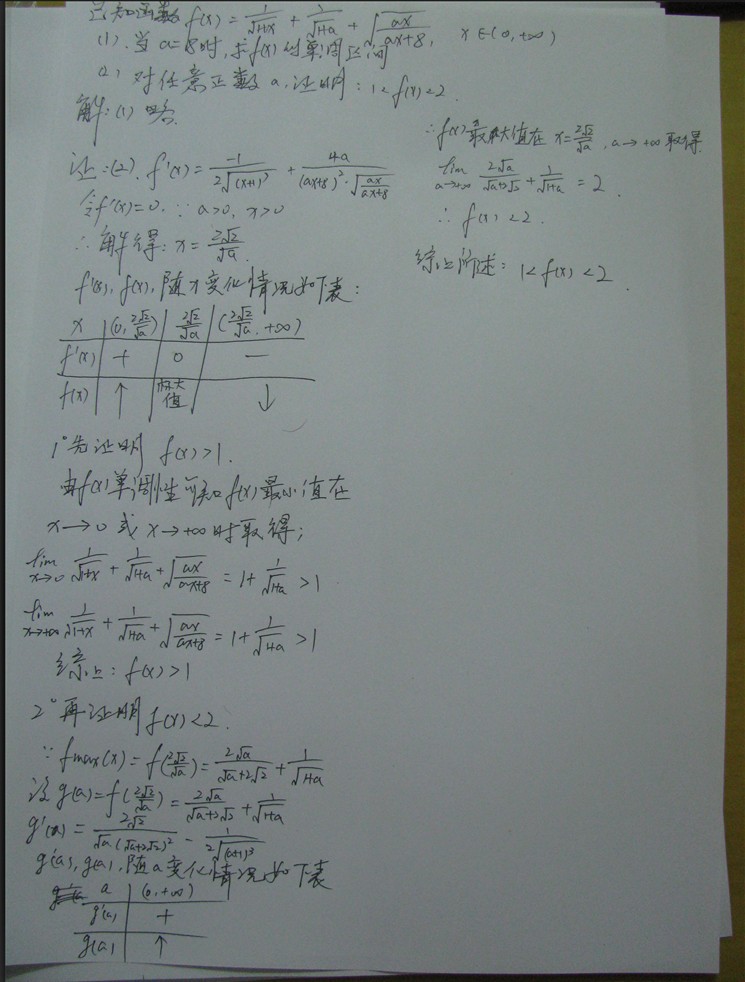 已知函数 f(x) = 1/√(1+x) + 1/√(1+a) + √(ax/(ax+8)), x∈(0,+∞)
(1). 当a=8时,求f(x)的单调区间
(2) 对任意正数a,证明:1<f(x)<2.
解:(1) 略.
证:(2). f'(x) = -1/(2√((x+1)³)) + 4a/((ax+8)²·√(ax/(ax+8)))
令f'(x)=0. ∵ a>0, x>0
∴解得:x = 2√2/√a.
f'(x), f(x), 随x变化情况如下表:
x | (0, 2√2/√a) | 2√2/√a | (2√2/√a, +∞)
f'(x) | + | 0 | −
f(x) | ↑ | 极大值 | ↓
1° 先证明 f(x)>1.
由f(x)单调性可知f(x)最小值在
x→0 或 x→+∞时取得;
lim x→0 1/√(1+x) + 1/√(1+a) + √(ax/(ax+8)) = 1 + 1/√(1+a) > 1
lim x→+∞ 1/√(1+x) + 1/√(1+a) + √(ax/(ax+8)) = 1 + 1/√(1+a) > 1
综上:f(x)>1
2° 再证明f(x)<2.
∵ fmax(x) = f(2√2/√a) = 2√a/(√a+2√2) + 1/√(1+a)
设 g(a) = f(2√2/√a) = 2√a/(√a+2√2) + 1/√(1+a)
g'(a) = 2√2/(√a(√a+2√2)²) − 1/(2√((a+1)³))
g'(a), g(a), 随a变化情况如下表
a | (0,+∞)
g'(a) | +
g(a) | ↑
∴f(x)最大值在 x=2√2/√a, a→+∞取得.
lim a→+∞ 2√a/(√a+2√2) + 1/√(1+a) = 2.
∴ f(x)<2.
综上所述:1<f(x)<2.